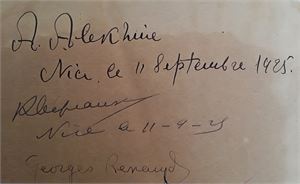 A. Alekhine
Nice, le 11 Septembre 1925.
Nice le 11-9-25
Georges Renaud